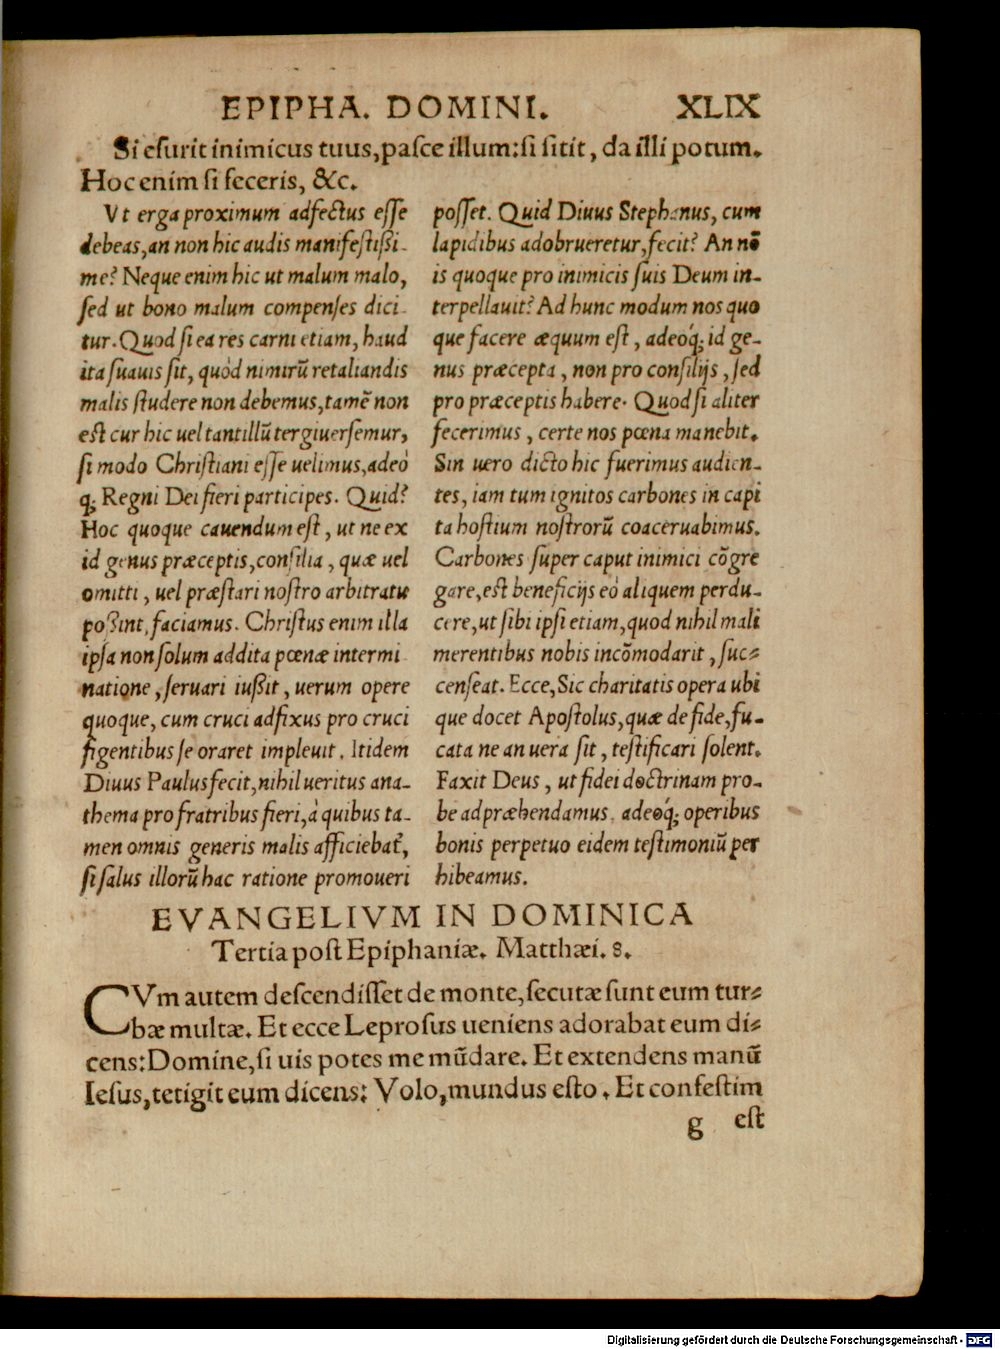 EPIPHA. DOMINI. XLIX
Si esurit inimicus tuus, pasce illum: si sitit, da illi potum.
Hoc enim si feceris, &c.
Vt erga proximum adfectus esse
debeas, an non hic audis manifestißi-
me? Neque enim hic ut malum malo,
sed ut bono malum compenses dici-
tur. Quod si ea res carni etiam, haud
ita suauis sit, quòd nimirũ retaliandis
malis studere non debemus, tamẽ non
est cur hic uel tantillũ tergiuersemur,
si modo Christiani esse uelimus, adeò
q; Regni Dei fieri participes. Quid?
Hoc quoque cauendum est, ut ne ex
id genus præceptis, consilia, quæ uel
omitti, uel præstari nostro arbitratu
poßint, faciamus. Christus enim illa
ipsa non solum addita pœnæ intermi
natione, seruari iußit, uerum opere
quoque, cum cruci adfixus pro cruci
figentibus se oraret impleuit. Itidem
Diuus Paulus fecit, nihil ueritus ana-
thema pro fratribus fieri, à quibus ta-
men omnis generis malis afficiebat̃,
si salus illorũ hac ratione promoueri
posset. Quid Diuus Stephanus, cum
lapidibus adobrueretur, fecit? An nõ
is quoque pro inimicis suis Deum in-
terpellauit? Ad hunc modum nos quo
que facere æquum est, adeoq́; id ge-
nus præcepta, non pro consilijs, sed
pro præceptis habere. Quod si aliter
fecerimus, certe nos pœna manebit.
Sin uero dicto hic fuerimus audien-
tes, iam tum ignitos carbones in capi
ta hostium nostrorũ coaceruabimus.
Carbones super caput inimici cõgre
gare, est beneficijs eò aliquem perdu-
cere, ut sibi ipsi etiam, quod nihil mali
merentibus nobis incõmodarit, suc-
censeat. Ecce, Sic charitatis opera ubi
que docet Apostolus, quæ de fide, fu-
cata ne an uera sit, testificari solent.
Faxit Deus, ut fidei doctrinam pro-
be adpræhendamus, adeoq́; operibus
bonis perpetuo eidem testimoniũ per
hibeamus.
EVANGELIVM IN DOMINICA
Tertia post Epiphaniæ. Matthæi. 8.
CVm autem descendisset de monte, secutæ sunt eum tur-
bæ multæ. Et ecce Leprosus ueniens adorabat eum di-
cens: Domine, si uis potes me mũdare. Et extendens manũ
Iesus, tetigit eum dicens: Volo, mundus esto. Et confestim
g est
Digitalisierung gefördert durch die Deutsche Forschungsgemeinschaft - DFG